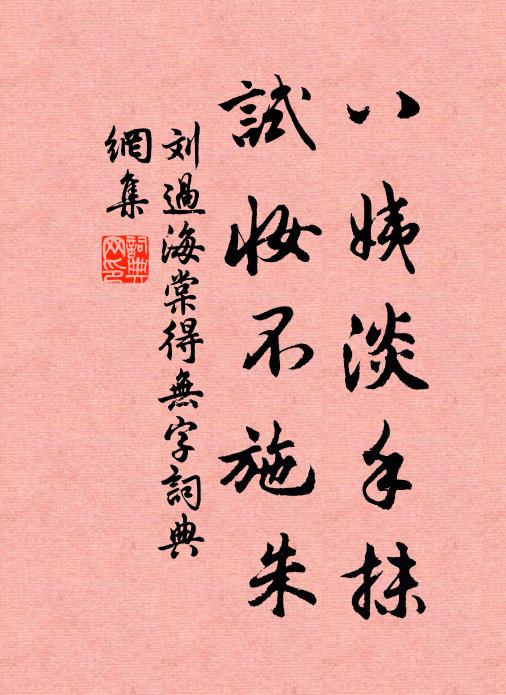 八姨淡手抹
試妝不施朱
刘過海棠得無字詞典
網集
詞典
网印